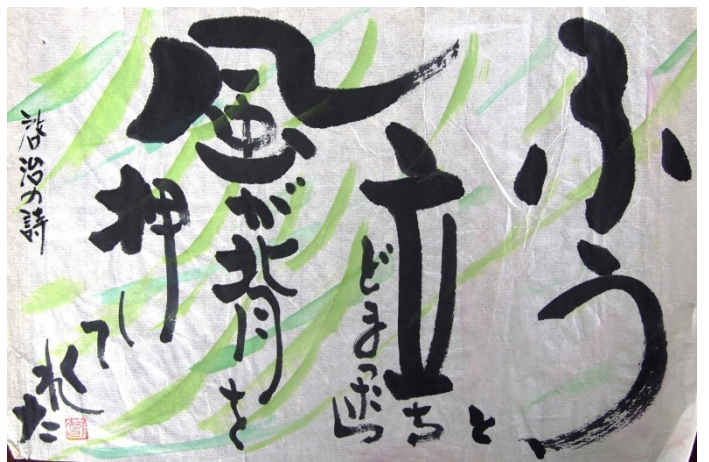 ふうと
立ち
どまったら
風が背を
押してくれた
治の詩